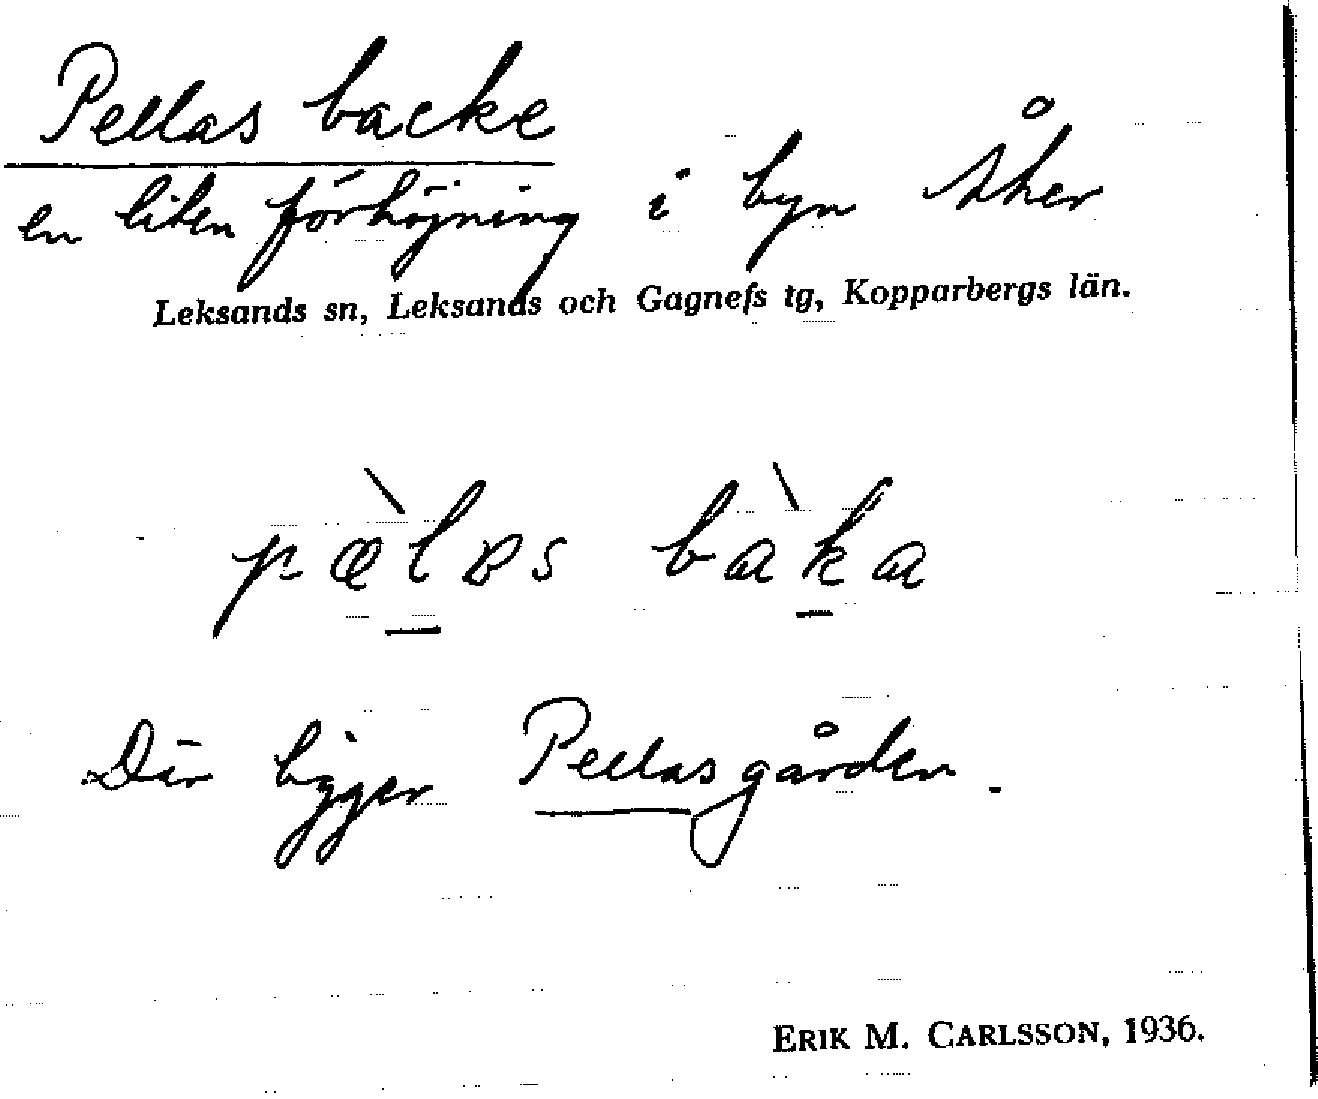 Pellas backe
en liten förhöjning i byn Åker
Leksands sn, Leksands och Gagnefs tg, Kopparbergs län.
pæ̀l̠ɐs bàk̠a
Där ligger Pellasgården.
ERIK M. CARLSSON, 1936.